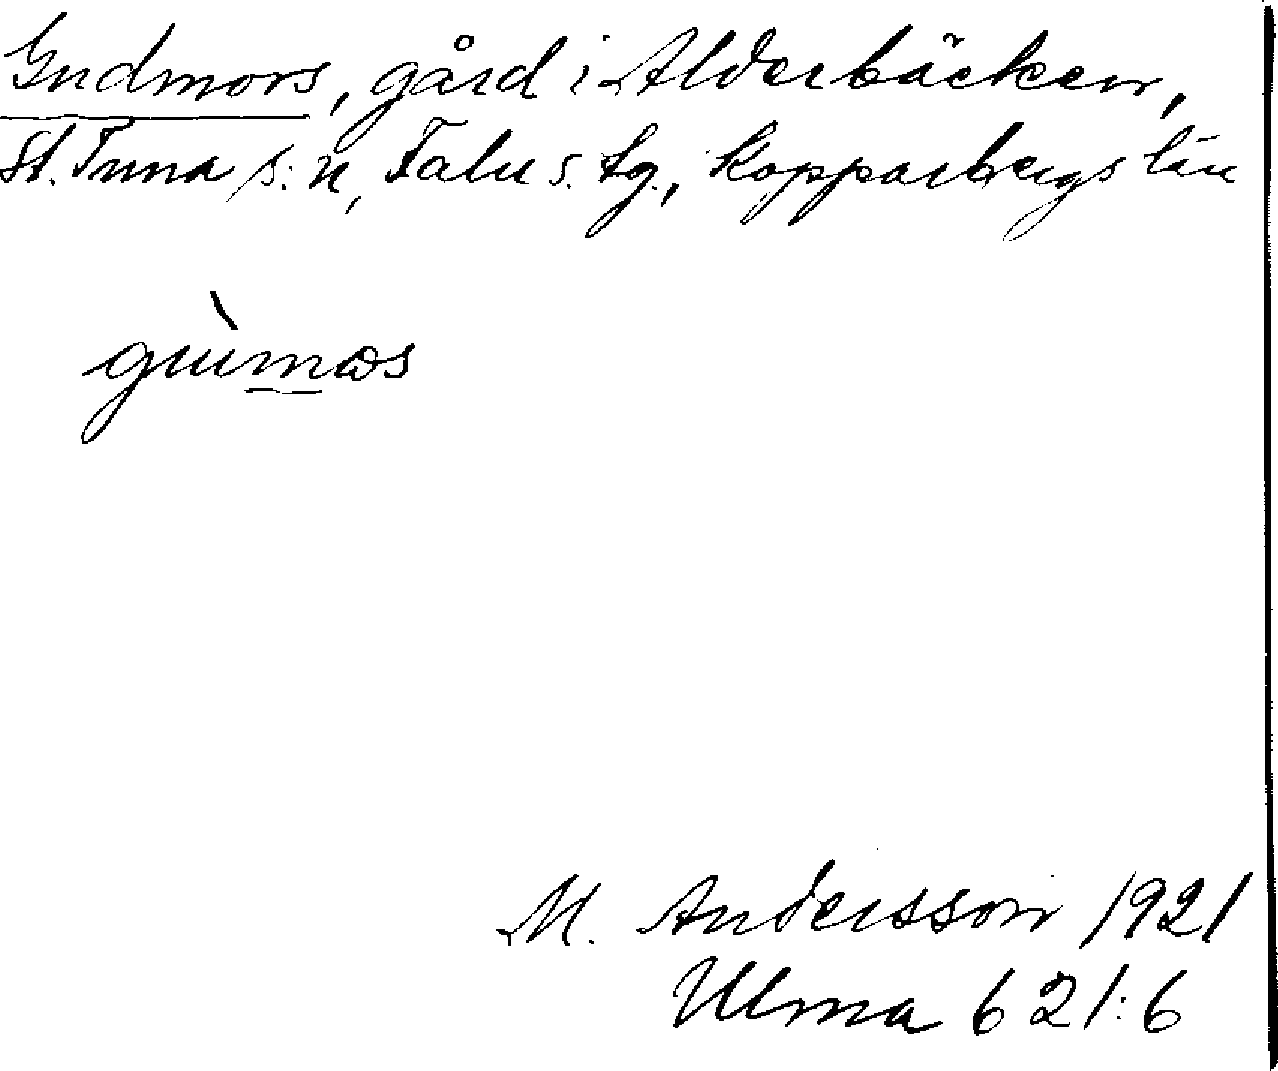 Gudmors, gård i Alderbäcken,
St. Tuna s:n, Falu s. tg., Kopparbergs län
M. Andersson 1921
Ulma 621:6